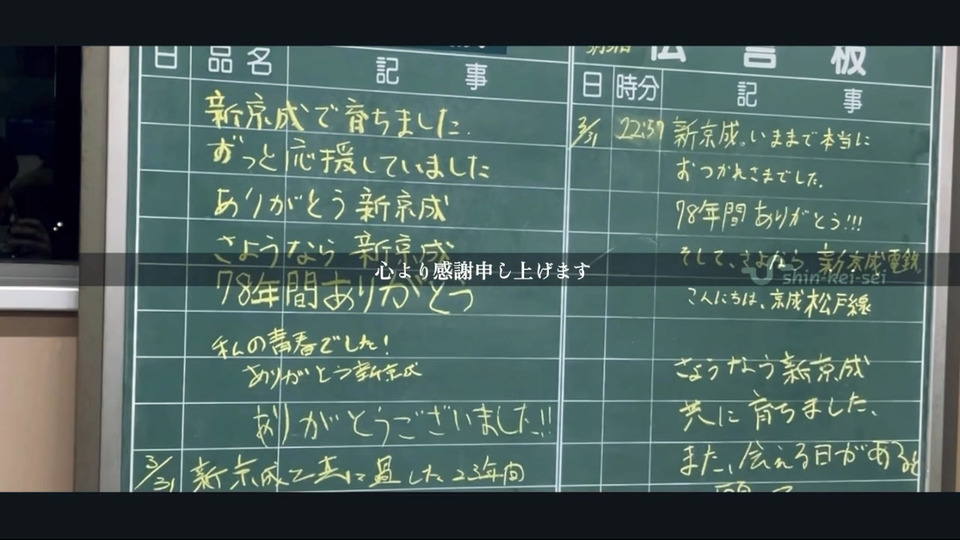 日 品名 記事
新京成で育ちました。
ずっと応援していました
ありがとう新京成
さようなら新京成
78年間ありがとう
私の青春でした!
ありがとう新京成
ありがとうございました!!
3/31 新京成と共に過した23年間
伝言板
日 時分 記事
3/31 22:37 新京成。いままで本当に
おつかれさまでした。
78年間ありがとう!!!
そして、さよなら 新京成電鉄
こんにちは、京成松戸線
さようなら新京成
共に育ちました、
また、会える日があると
心より感謝申し上げます
shin-kei-sei